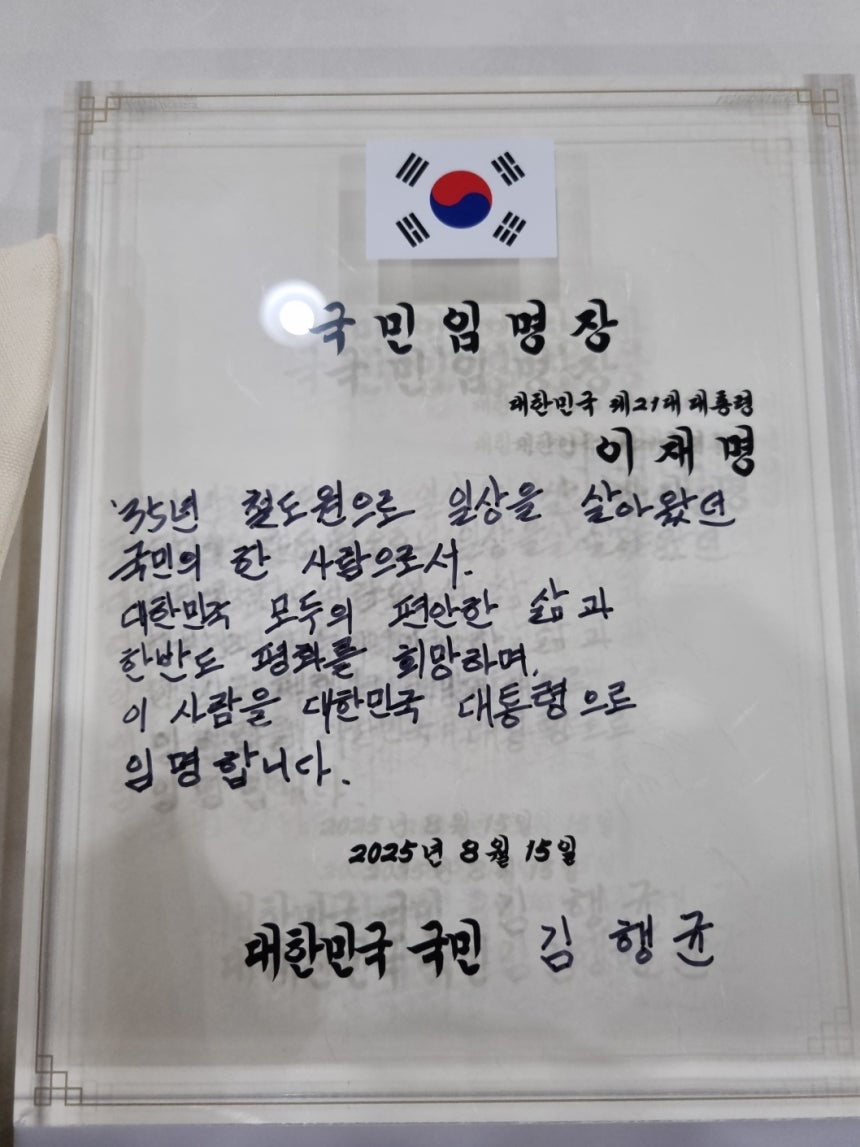 국민임명장
대한민국 제21대 대통령
이재명
'35년 철도원으로 일상을 살아왔던
국민의 한 사람으로서.
대한민국 모두의 편안한 삶과
한반도 평화를 희망하며,
이 사람을 대한민국 대통령으로
임명합니다.
2025년 8월 15일
대한민국 국민 김행균